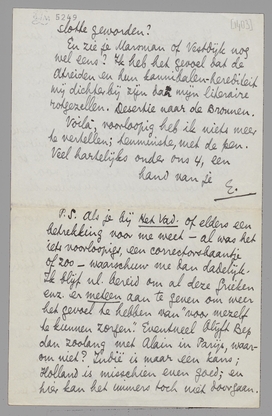 5249
slotte geworden?
En zie je Marsman of Vestdijk nog
wel eens? Ik heb het gevoel dat de
Atreiden en hun kannibalen-herediteit
mij dichterbij zijn dan mijn literaire
rotgezellen. Desertie naar de Bronnen.
Voilà, voorloopig heb ik niets meer
te vertellen; tenminste, met de pen.
Veel hartelijks onder ons 4, een
hand van je
E.
P.S. Als je bij Het Vad. of elders een
betrekking voor me weet – al was het
iets voorloopigs, een correctorsbaantje
of zoo – waarschuw me dan dadelijk.
Ik blijf nl. bereid om al deze grieken
enz. er meteen aan te geven om weer
het gevoel te hebben van "voor mezelf
te kunnen zorgen". Eventueel blijft Bep
dan zoolang met Alain in Parijs, waar-
om niet? Indië is maar een kans;
Holland is misschien even goed; en
hier kan het immers toch niet doorgaan.